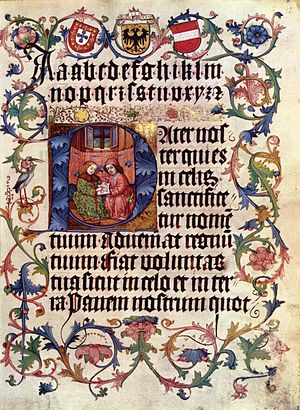 Aaabcdefghiklm
nopqrſstuvxyz
Pater nos
ter qui es
in celis
sanctifice
tur nomē
tuum Adveniat regnū
tuum Fiat voluntas
tua sicut in celo et in ter
ra Panem nostrum quot